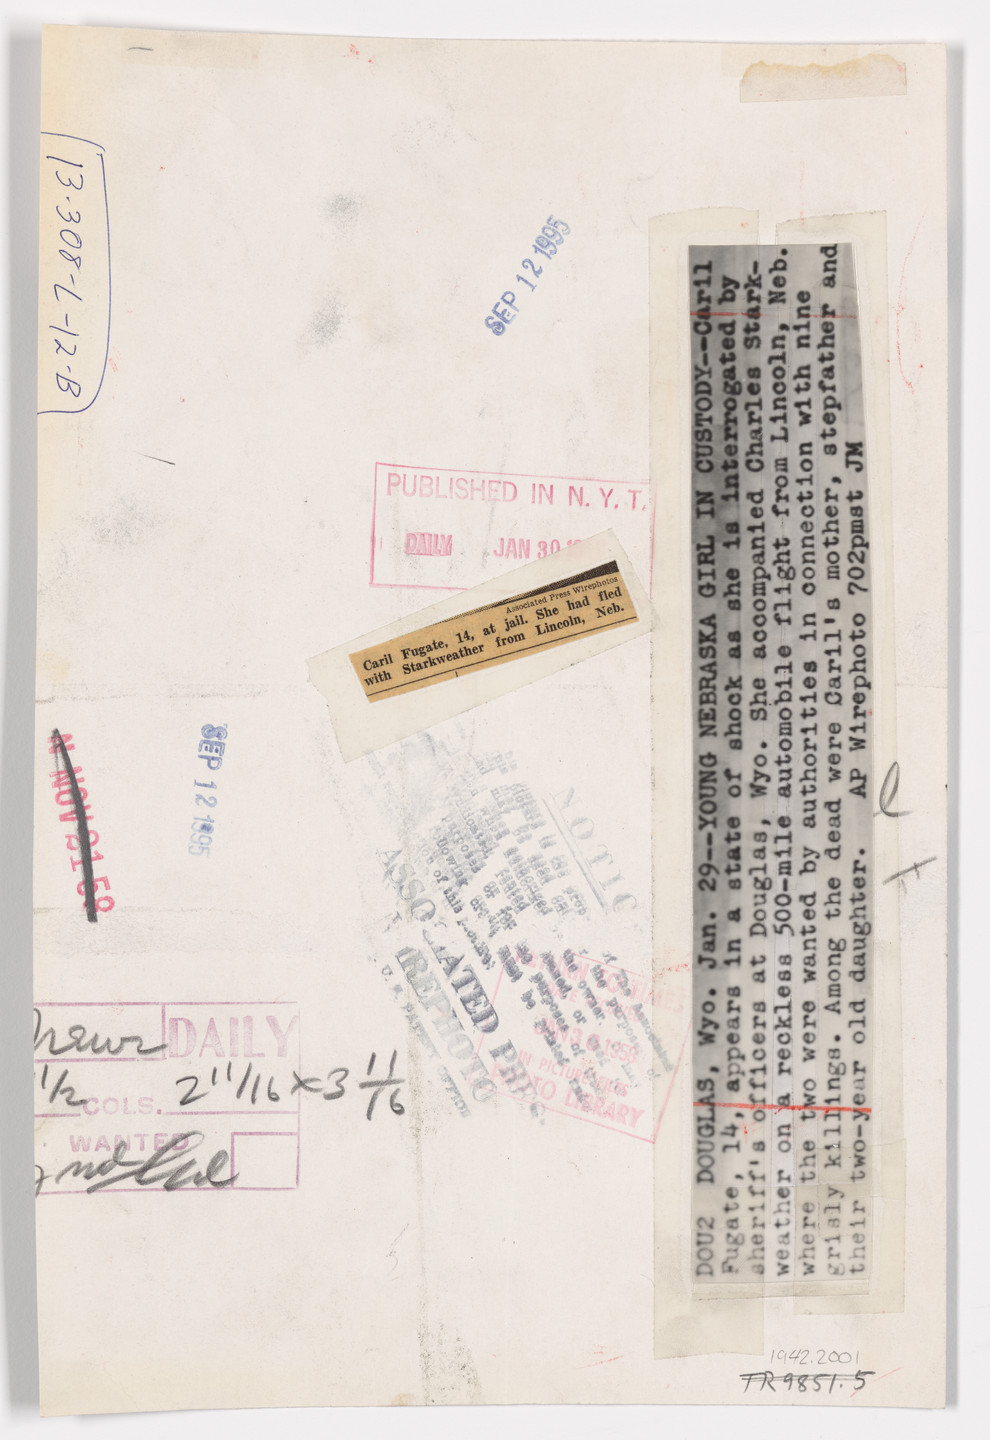 13-308-L-12-B
SEP 12 1995
PUBLISHED IN N. Y. T.
DAILY JAN 30
Associated Press Wirephotos
Caril Fugate, 14, at jail. She had fled
with Starkweather from Lincoln, Neb.
DOU2 DOUGLAS, Wyo. Jan. 29--YOUNG NEBRASKA GIRL IN CUSTODY--Caril
Fugate, 14, appears in a state of shock as she is interrogated by
sheriff's officers at Douglas, Wyo. She accompanied Charles Stark-
weather on a reckless 500-mile automobile flight from Lincoln, Neb.
where the two were wanted by authorities in connection with nine
grisly killings. Among the dead were Caril's mother, stepfather and
their two-year old daughter. AP Wirephoto 702pmst JM
SEP 12 1995
NOTIC
ASSOCIATED PRESS
WIREPHOTO
JAN 30 1958
PHOTO LIBRARY
DAILY
1/2 COLS. 2 11/16 x 3 11/16
WANTED
1942.2001
TR9851.5